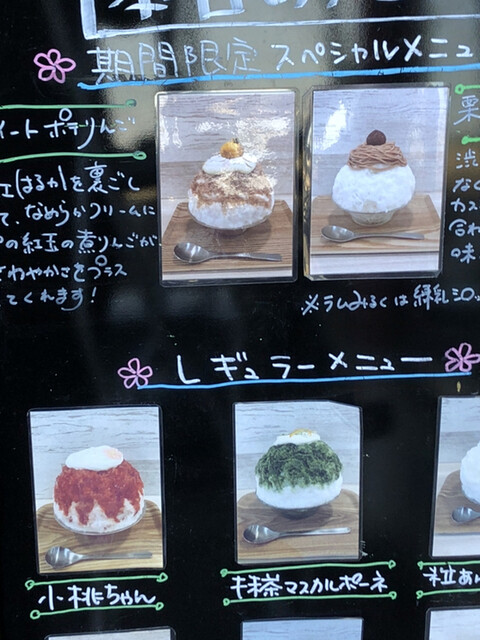 本日の
期間限定 スペシャルメニュ
イートポテりんご
紅はるかを裏ごし
て、なめらかクリームに
の紅玉の煮りんごが
さわやかさをプラス
てくれます!
栗
渋
なく
カス
合わ
味
※ラムみるくは練乳シロッ
レギュラーメニュー
小桃ちゃん
抹茶マスカルポーネ
粒あ